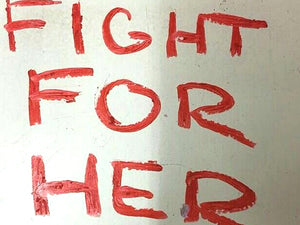 FIGHT
FOR
HER